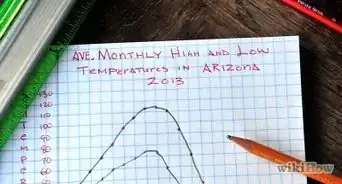 AVE. MONTHLY HIGH AND LOW
TEMPERATURES IN ARIZONA
2013
130
120
110
100
90
80
70
60
T
E
M
P
E
R
wikiHow